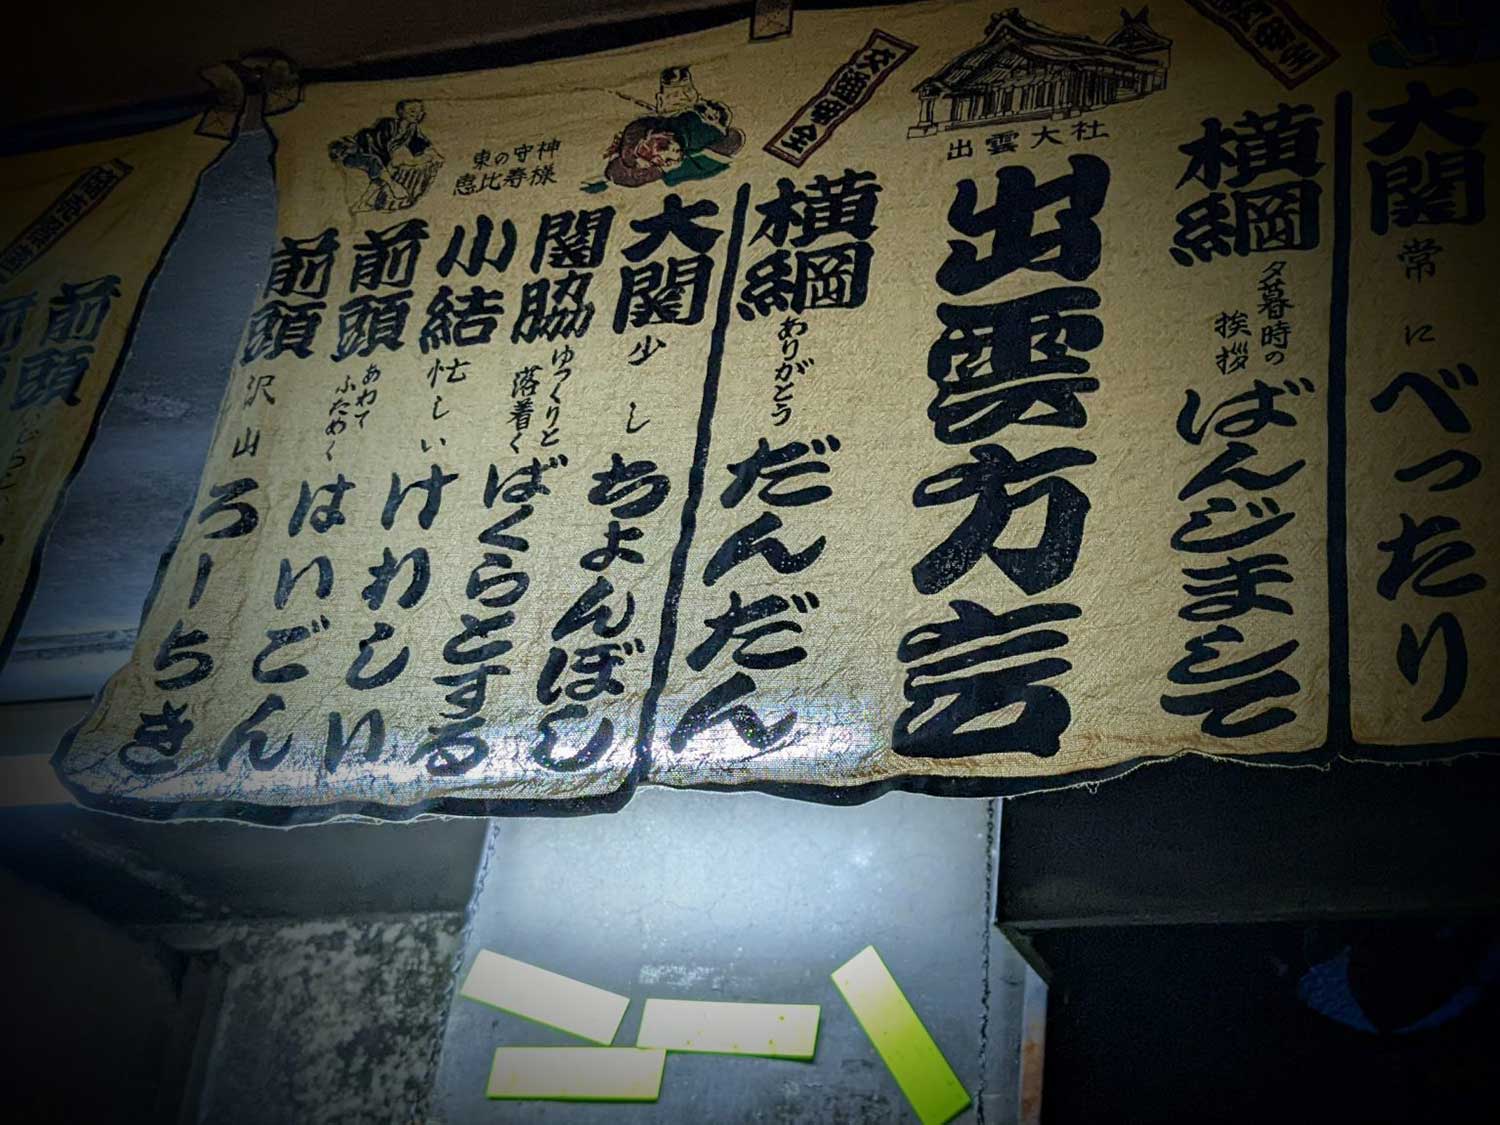 大関 常に べったり
横綱 夕暮時の挨拶 ばんじまシて
出雲大社
出雲方言
横綱 ありがとう だんだん
大関 少し ちょんぼし
東の守神
恵比寿様
関脇 ゆっくりと落着く ばくらとする
小結 忙しい けわしい
前頭 あわてふためく はいごん
前頭 沢山 ろーちき
前頭
前頭